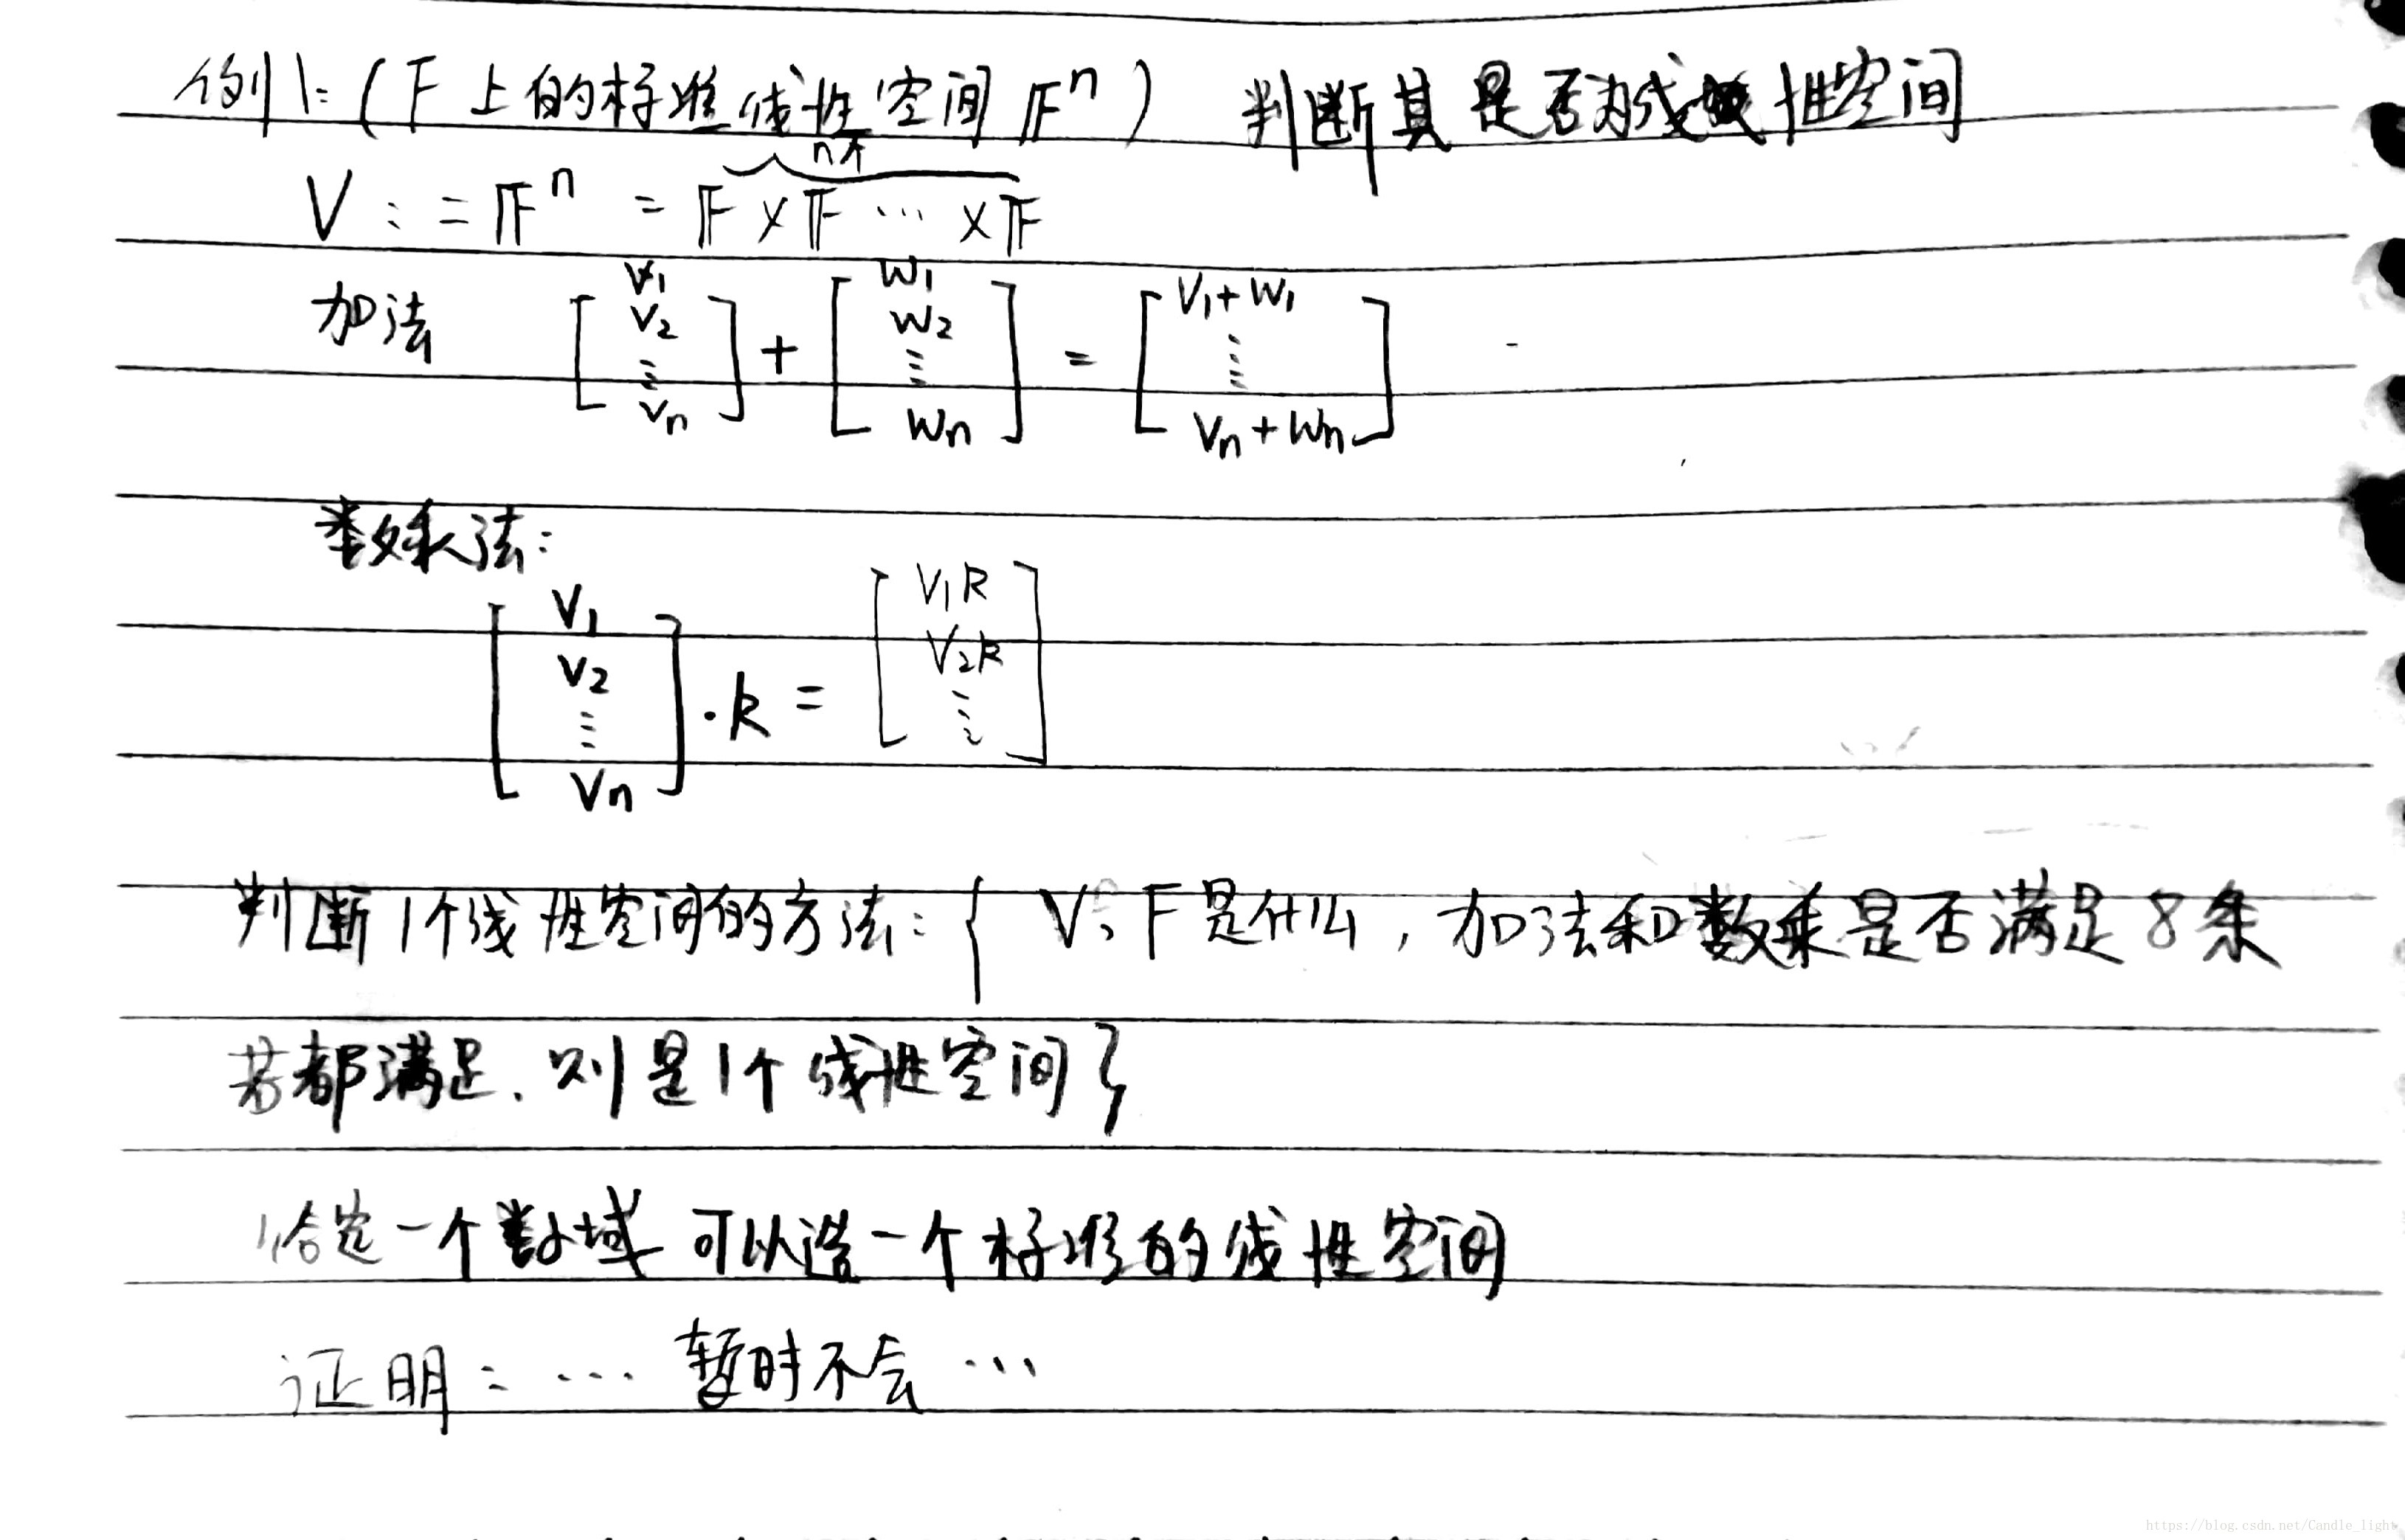 例1:(𝔽上的标准线性空间𝔽ⁿ) 判断其是否为线性空间
n个
V := 𝔽ⁿ = 𝔽×𝔽…×𝔽
加法 [v₁ v₂ ⋮ vₙ] + [w₁ w₂ ⋮ wₙ] = [v₁+w₁ ⋮ vₙ+wₙ]
数乘法:
[v₁ v₂ ⋮ vₙ]·k = [v₁k v₂k ⋮]
判断1个线性空间的方法:{ V、F是什么,加法和数乘是否满足8条
若都满足.则是1个线性空间}
给定一个数域 可以造一个标准的线性空间
证明:… 暂时不会 …
https://blog.csdn.net/Candle_light